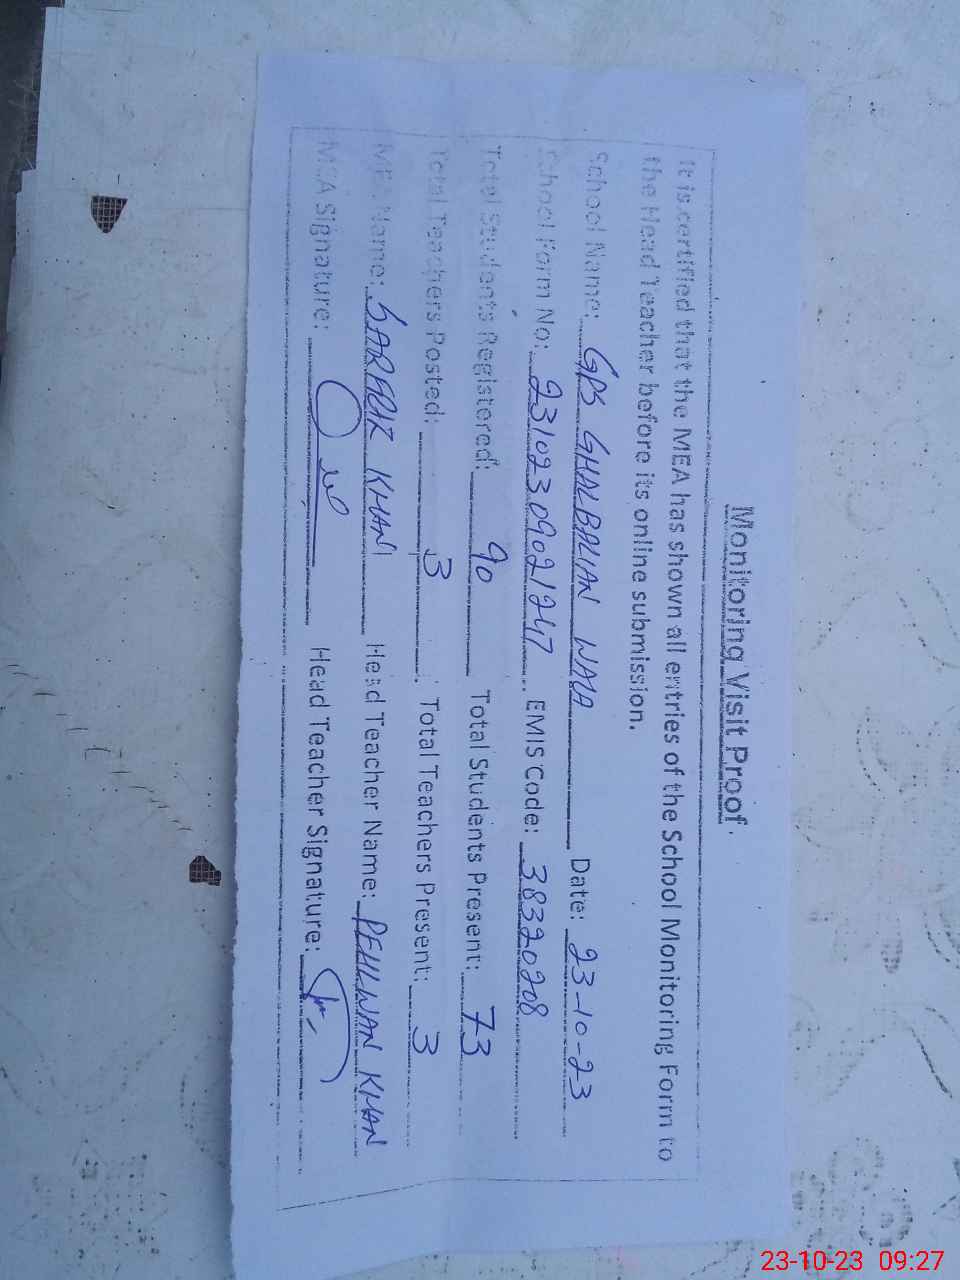 Monitoring Visit Proof.
It is certified that the MEA has shown all entries of the School Monitoring Form to
the Head Teacher before its online submission.
School Name: GPS GHALBALIAN WALA Date: 23-10-23
School Form No: 23102309021247 EMIS Code: 38320208
Total Students Registered: 90 Total Students Present: 73
Total Teachers Posted: 3 Total Teachers Present: 3
MEA Name: KHAN Head Teacher Name: PEHLWAN KHAN
MEA Signature: Head Teacher Signature:
23-10-23 09:27